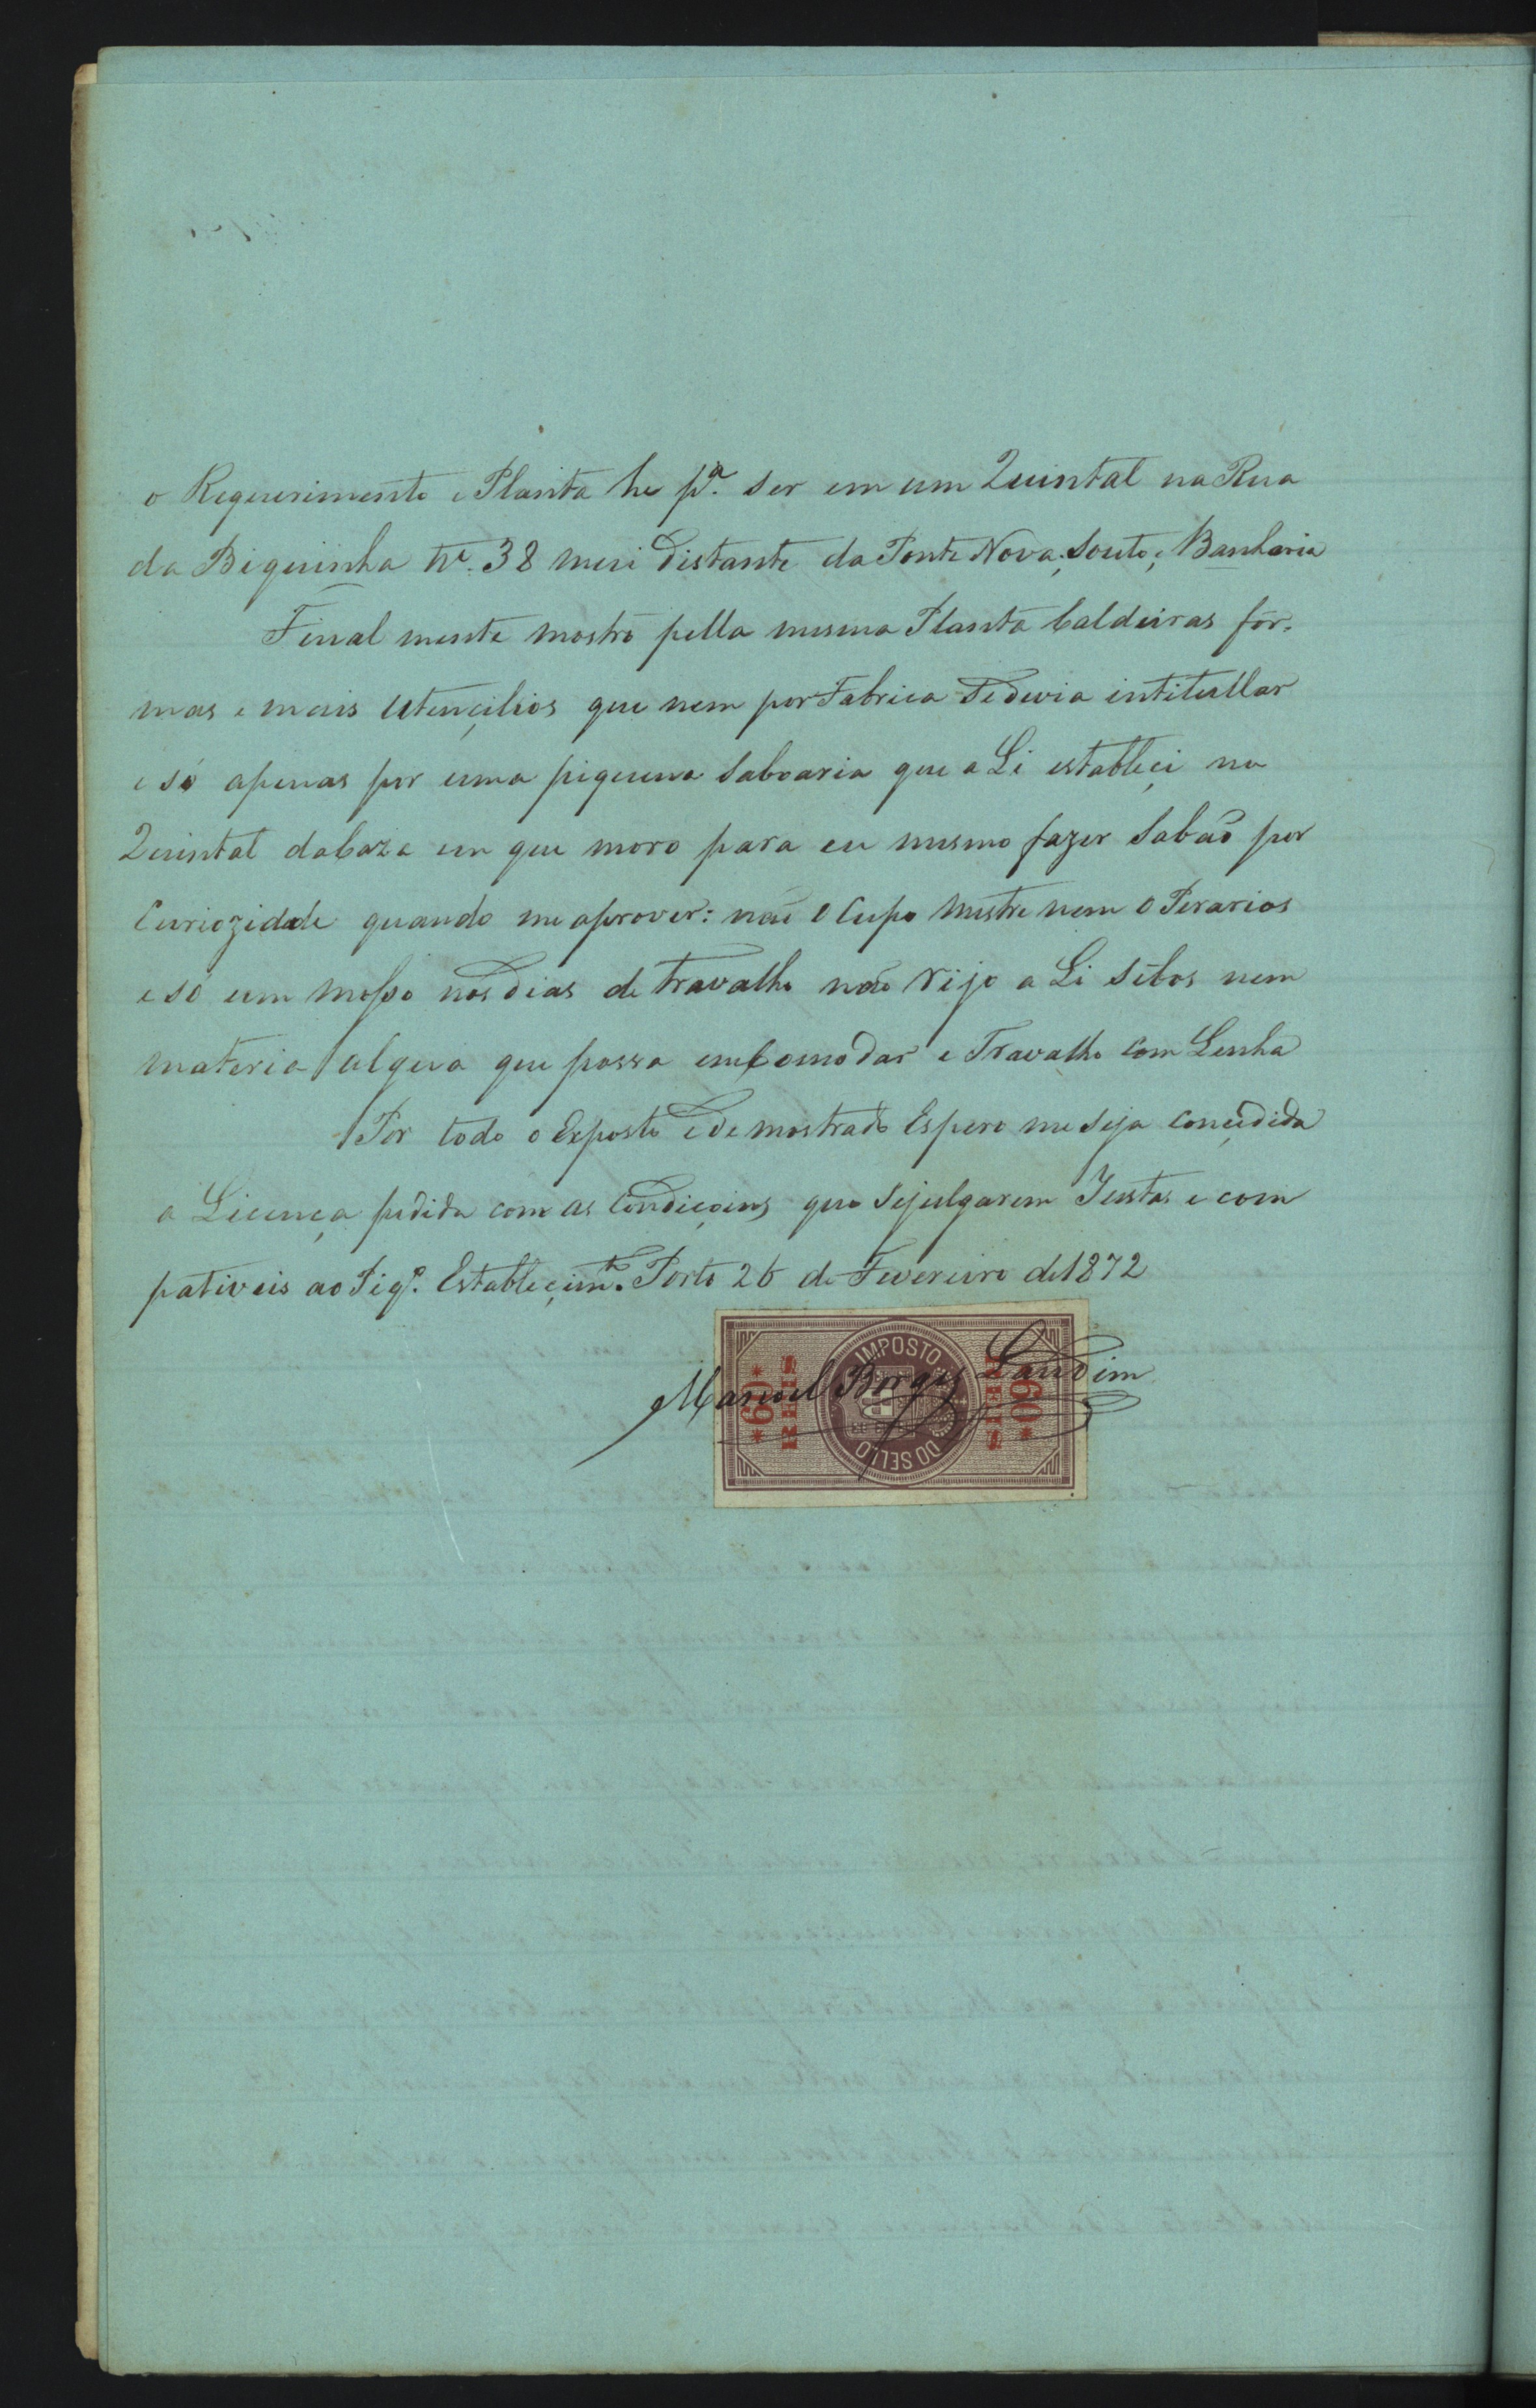 o Requerimento e Planta he pª. ser em um Quintal na Rua
da Biquinha Nº. 38 mui distante da Ponte Nova, Souto, Banharia
Final mente mostro pella mesma Planta Caldeiras for-
mas e mais Utençilios que nem por Fabrica Se devia intitullar
e só apenas por uma piquena Saboaria que a Li estableçi no
Quintal da Caza em que moro para eu mesmo fazer Sabaõ por
Curiozidade quando me aprover: naõ O Cupo Mestre nem O Perarios
e só um Mosso nos dias de travalho naõ Rijo a Li Sebos nem
materia algua que possa emcomodar e Travalho com Lenha
Por todo o Exposto e de mostrado Espero me Seja Conçedida
a Licença pedida com as Condiçoins que Se julgarem Justas e com
pativeis ao Piqº. Estableçimtº. Porto 26 de Fevereiro de 1872
Manoel Borges Landim
IMPOSTO DO SELLO
*60* REIS
*60* REIS